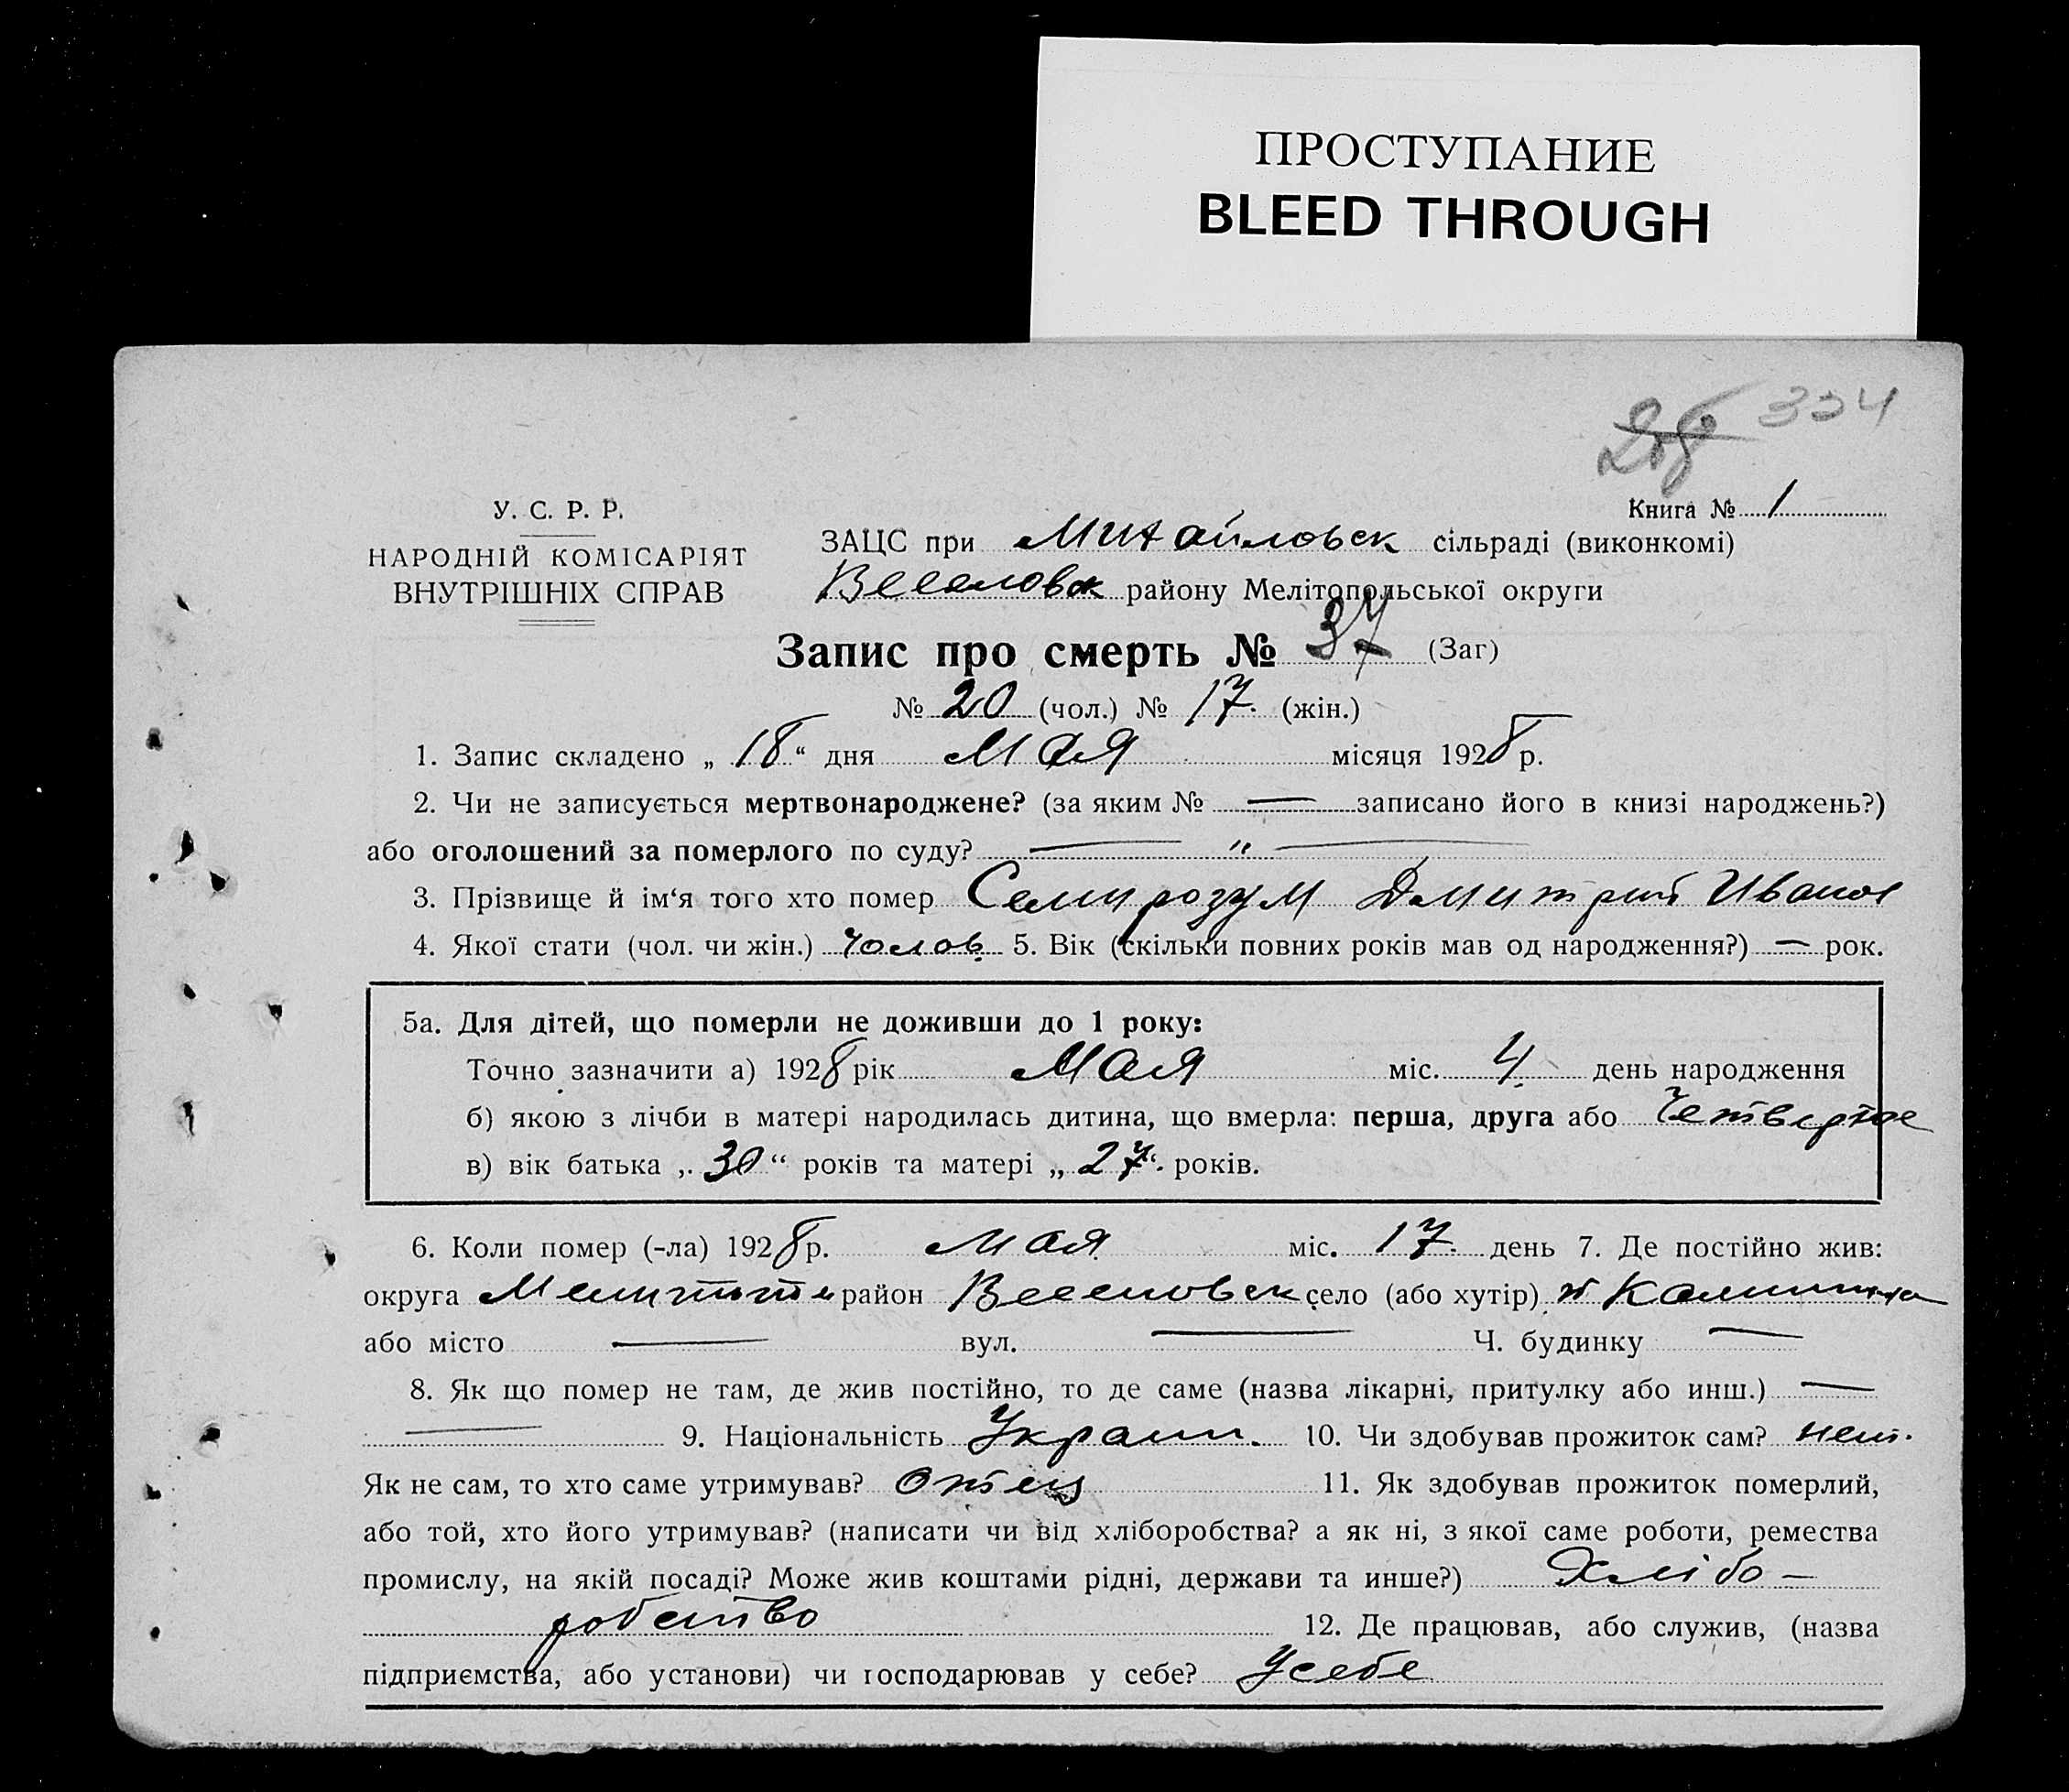 ПРОСТУПАНИЕ
BLEED THROUGH
324
Книга № 1
У. С. Р. Р.
НАРОДНІЙ КОМІСАРІЯТ
ВНУТРІШНІХ СПРАВ
ЗАЦС при Михайловск сільраді (виконкомі)
Веселовск району Мелітопольської округи
Запис про смерть № 37 (Заг)
№ 20 (чол.) № 17. (жін.)
1. Запис складено „ 18 “ дня мая місяця 1928 р.
2. Чи не записується мертвонароджене? (за яким № — записано його в книзі народжень?)
або оголошений за померлого по суду? — „ —
3. Прізвище й ім‘я того хто помер Семирозум Дмитрий Иванов
4. Якої стати (чол. чи жін.) чолов. 5. Вік (скільки повних років мав од народження?) — рок.
5а. Для дітей, що померли не доживши до 1 року:
Точно зазначити а) 1928 рік мая міс. 4. день народження
б) якою з лічби в матері народилась дитина, що вмерла: перша, друга або Четвертое
в) вік батька „ 30 “ років та матері „ 27 “. років.
6. Коли помер (-ла) 1928 р. мая міс. 17. день 7. Де постійно жив:
округа район Веселовск село (або хутір) х Калинина
або місто — вул. — Ч. будинку —
8. Як що помер не там, де жив постійно, то де саме (назва лікарні, притулку або инш.) —
— 9. Національність Украин. 10. Чи здобував прожиток сам? нет.
Як не сам, то хто саме утримував? Отец 11. Як здобував прожиток померлий,
або той, хто його утримував? (написати чи від хліборобства? а як ні, з якої саме роботи, ремества
промислу, на якій посаді? Може жив коштами рідні, держави та инше?) Хлібо-
робство 12. Де працював, або служив, (назва
підприємства, або установи) чи господарював у себе? Усебе